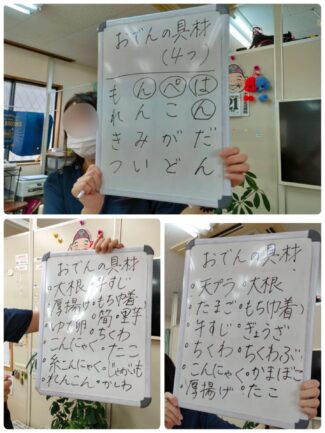 おでんの具材
(4つ)
も ん ぺ は
れ ん こ ん
き み が だ
つ い ど ん
21
おでんの具材
・大根・牛すじ
・厚揚げ・もち巾着
・ゆで卵・筍・里芋
・こんにゃく・ちくわ
・たこ
・糸こんにゃく・じゃがいも
・れんこん・がしわ
おでんの具材
・天プラ・大根
・たまご・もち(巾着)
・牛すじ・ぎょうざ
・ちくわ・ちくわぶ
・こんにゃく・かまぼこ
・厚揚げ・たこ